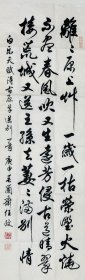 離〻原上艸一歲一枯榮野火燒
不盡春風吹又生遠芳侵古道晴翠
接荒城又送王孫去萋〻滿別情
白樂天賦得古原草送別一首 庚申 蘭齋任政